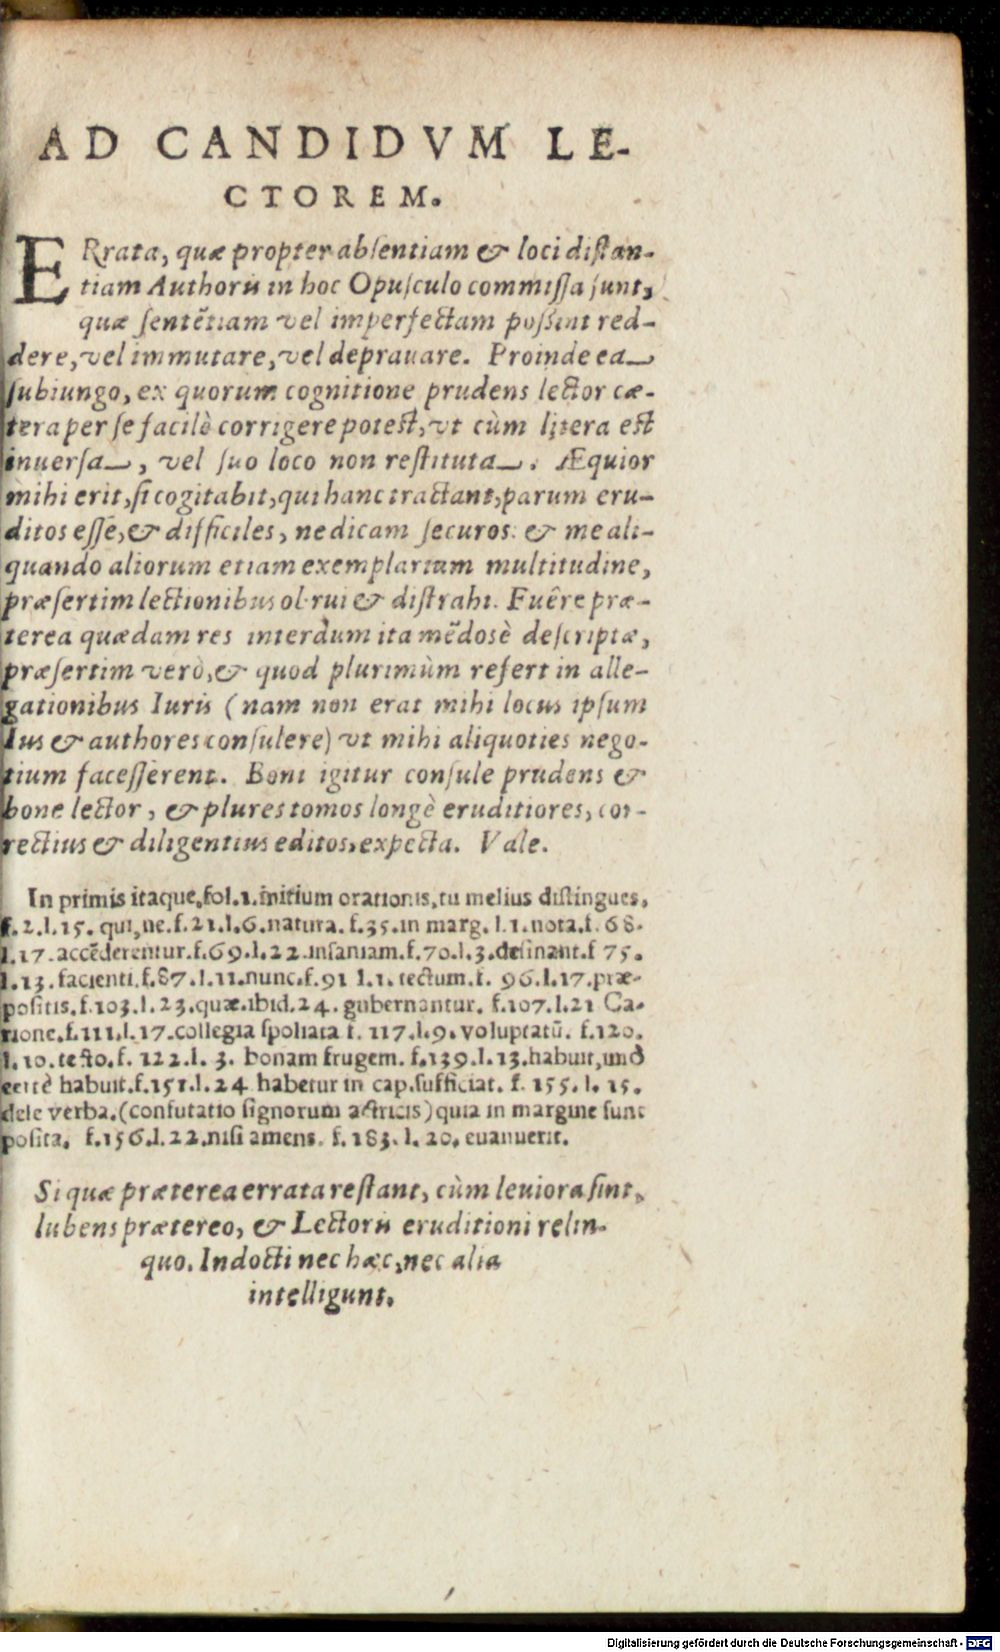 AD CANDIDVM LE-
CTOREM.
ERrata, quæ propter absentiam & loci distan-
tiam Authoris in hoc Opusculo commissa sunt,
quæ sentẽtiam vel imperfectam possint red-
dere, vel immutare, vel deprauare. Proinde ea
subiungo, ex quorum cognitione prudens lector cæ-
tera per se facilè corrigere potest, vt cùm litera est
inuersa, vel suo loco non restituta. Æquior
mihi erit, si cogitabit, qui hanc tractant, parum eru-
ditos esse, & difficiles, ne dicam securos: & me ali-
quando aliorum etiam exemplarium multitudine,
præsertim lectionibus obrui & distrahi. Fuêre præ-
terea quædam res interdum ita mẽdosè descriptæ,
præsertim verò, & quod plurimùm refert in alle-
gationibus Iuris (nam non erat mihi locus ipsum
Ius & authores consulere) vt mihi aliquoties nego-
tium facesserent. Boni igitur consule prudens &
bone lector, & plures tomos longè eruditiores, cor-
rectius & diligentius editos, expecta. Vale.
In primis itaque, fol. 1. initium orationis, tu melius distingues.
f. 2. l. 15. qui, ne. f. 21. l. 6. natura. f. 35. in marg. l. 1. nota. f. 68.
l. 17. accẽderentur. f. 69. l. 22. insaniam. f. 70. l. 3. desinant. f 75.
l. 13. facienti. f. 87. l. 11. nunc. f. 91 l. 1. tectum. f. 96. l. 17. præ-
positis. f. 103. l. 23. quæ. ibid. 24. gubernantur. f. 107. l. 21 Ca-
tione. f. 111. l. 17. collegia spoliata f. 117. l. 9. voluptatũ. f. 120.
l. 10. testo. f. 122. l. 3. bonam frugem. f. 139. l. 13. habuit, imò
certè habuit. f. 151. l. 24 habetur in cap. sufficiat. f. 155. l. 15.
dele verba. (confutatio signorum astricis) quia in margine sunt
posita. f. 156. l. 22. nisi amens. f. 183. l. 20. euanuerit.
Si quæ præterea errata restant, cùm leuiora sint,
lubens prætereo, & Lectoris eruditioni relin-
quo. Indocti nec hæc, nec alia
intelligunt.
Digitalisierung gefördert durch die Deutsche Forschungsgemeinschaft - DFG